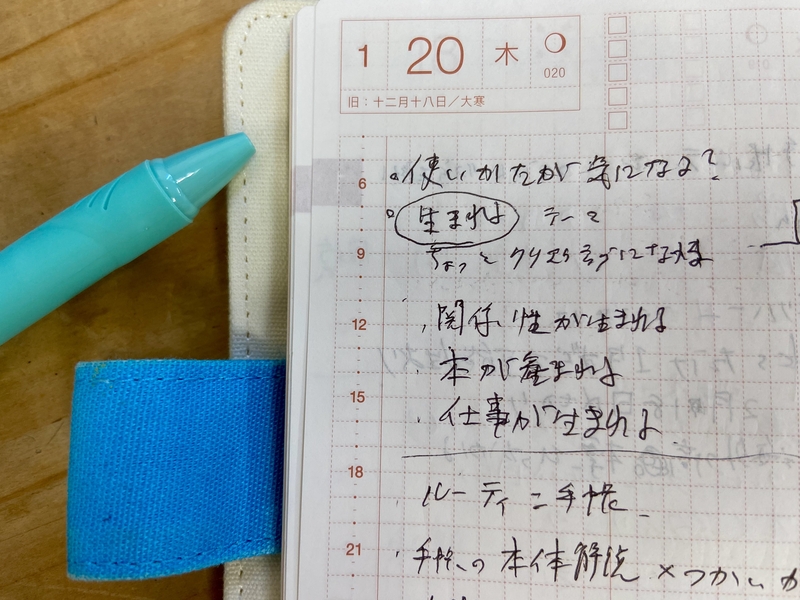 1 20 木
020
旧:十二月十八日/大寒
。使いかたが気になる?
6
。生まれる テーマ
9
ちょっと
12
・関係性が生まれる
・本が産まれる
15
・仕事が生まれる
18
ルーティン手帳
21
・手帳の本体解説×つかいか